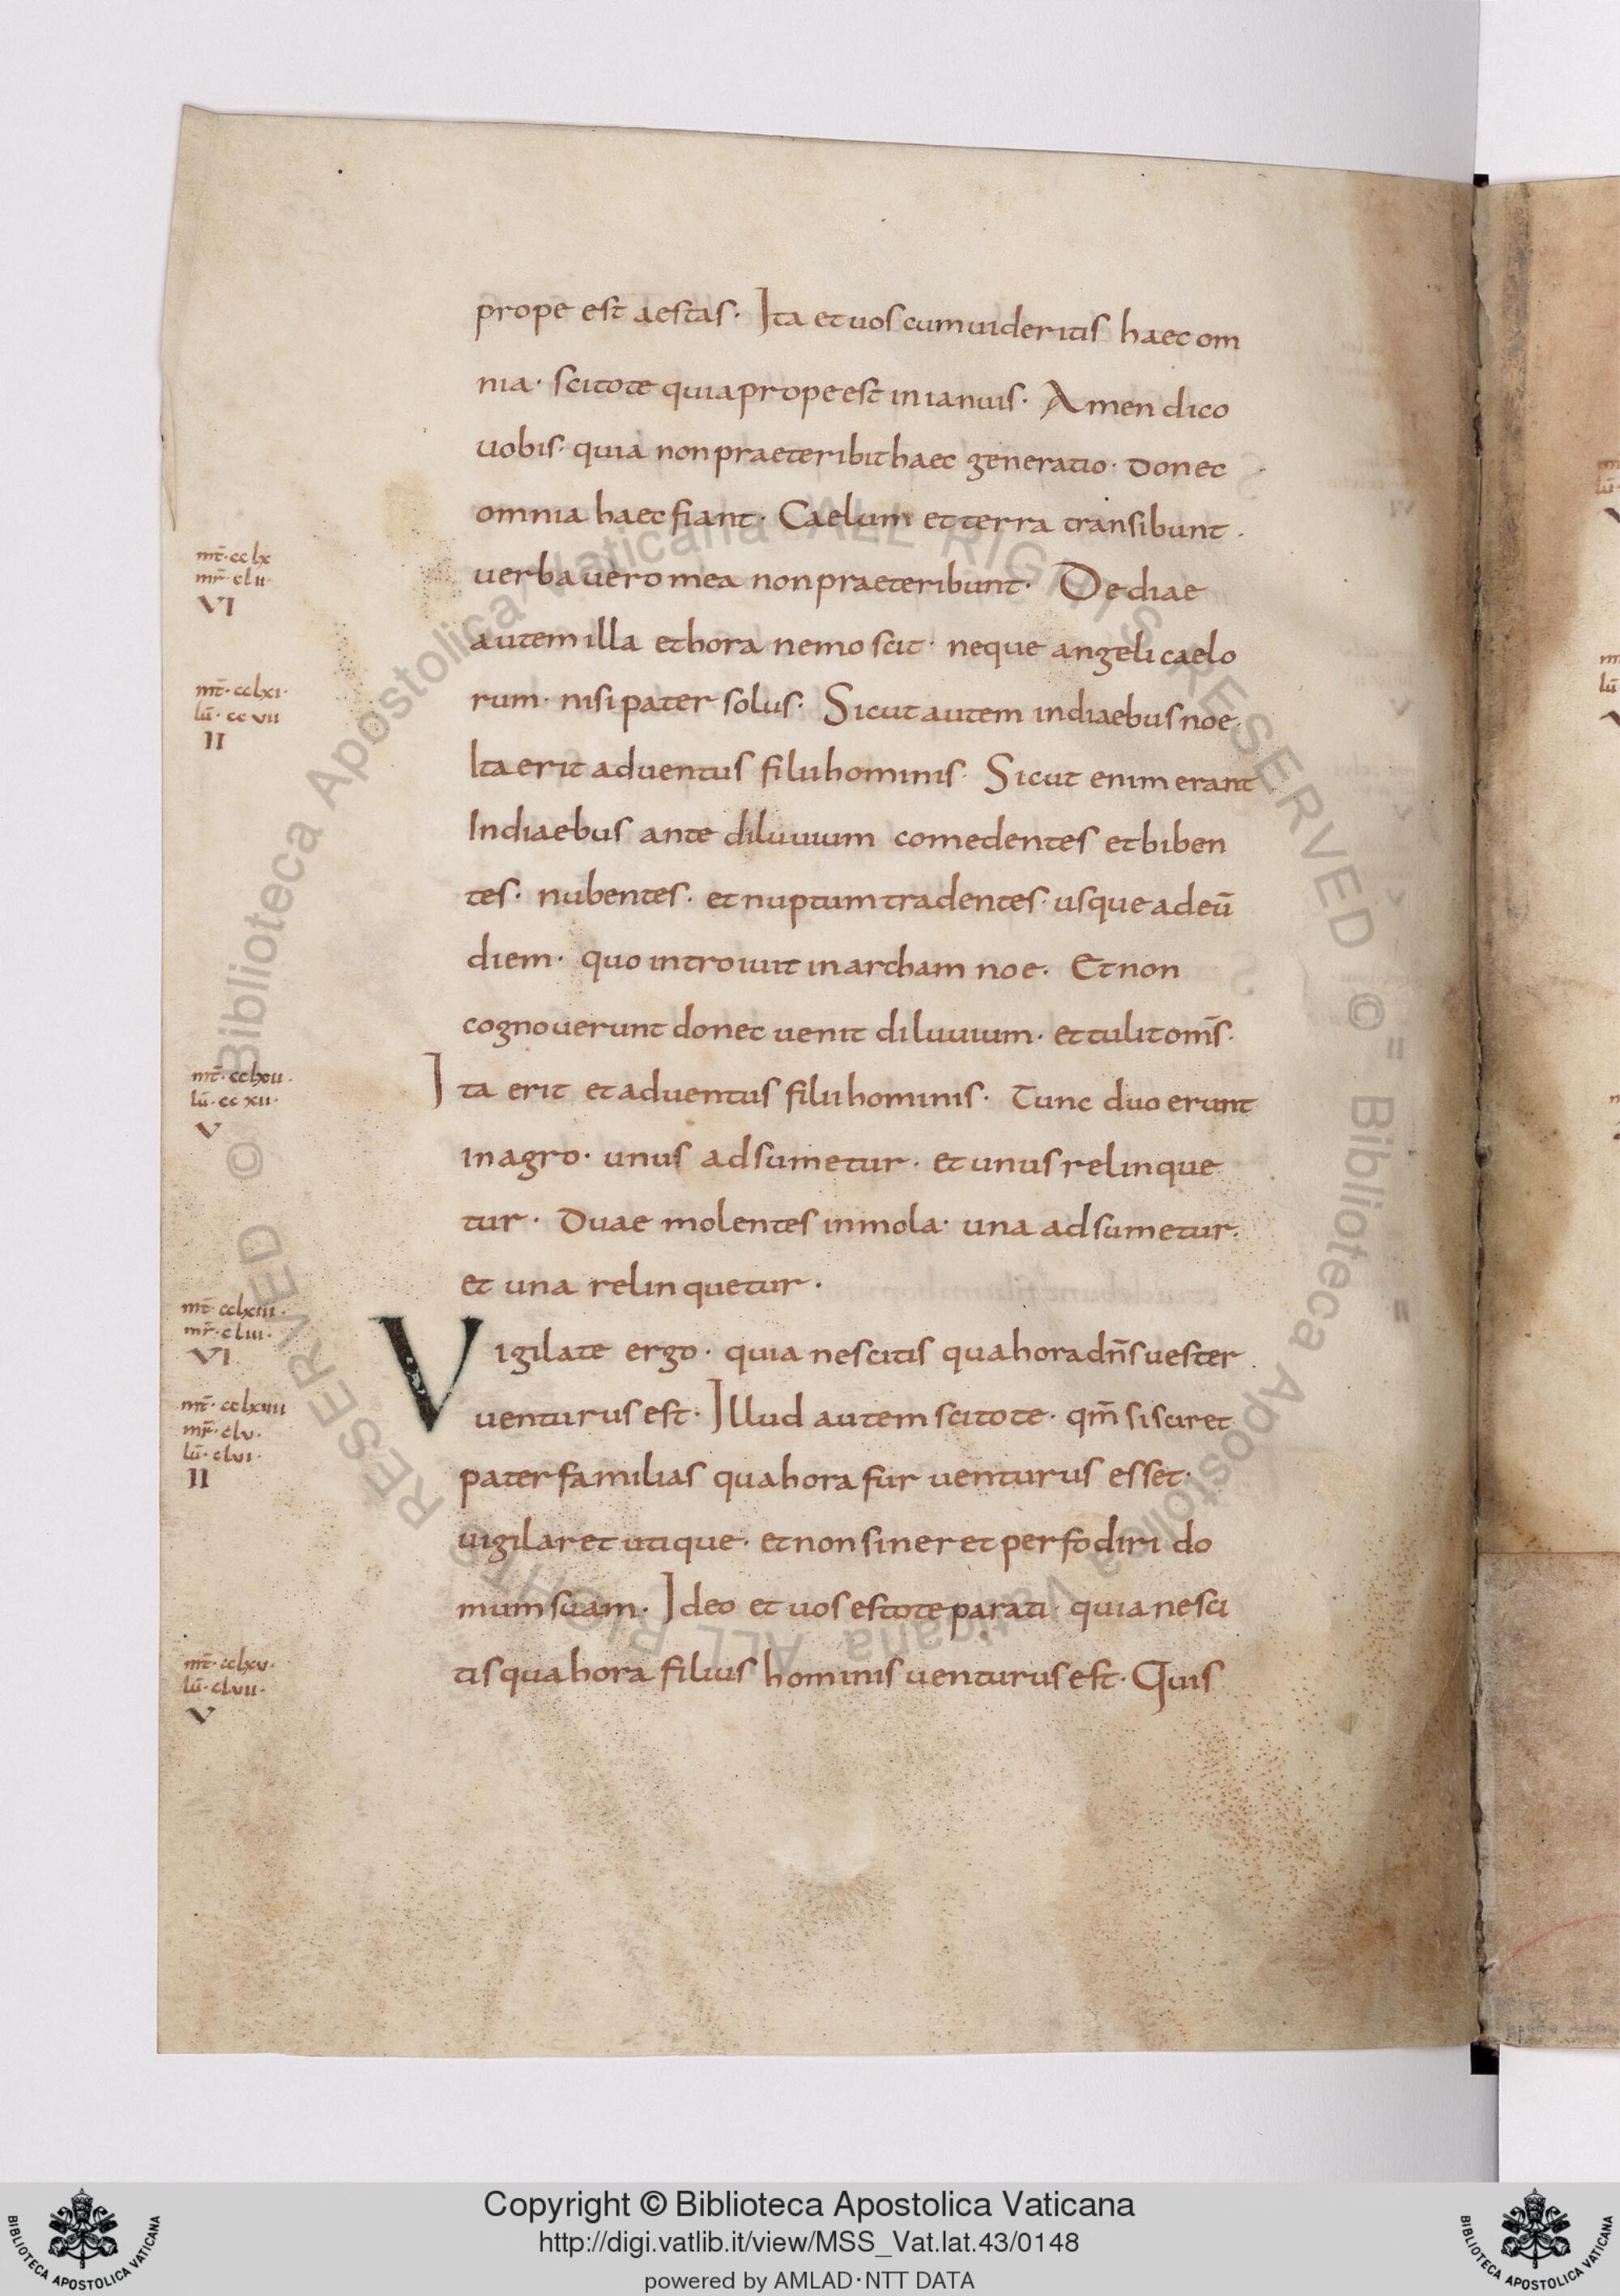 prope est aestas· Ita et uos cum uideritis haec om
nia· scitote quia prope est in ianuis· Amen dico
uobis· quia non praeteribit haec generatio· donec
omnia haec fiant· Caelum et terra transibunt·
uerba uero mea non praeteribunt· De diae
autem illa et hora nemo scit· neque angeli caelo
rum· nisi pater solus· Sicut autem in diaebus noe·
Ita erit aduentus filii hominis· Sicut enim erant
In diaebus ante diluuium comedentes et biben
tes· nubentes· et nuptum tradentes· usque ad eū
diem· quo introiuit in archam noe· Et non
cognouerunt donec uenit diluuium· et tulit om̄s·
Ita erit et aduentus filii hominis· Tunc duo erunt
in agro· unus adsumetur· et unus relinque
tur· Duae molentes in mola· una adsumetur·
et una relinquetur·
Vigilate ergo· quia nescitis qua hora dn̄s uester
uenturus est· Illud autem scitote· qm̄ si sciret
pater familias qua hora fur uenturus esset·
uigilaret utique· et non sineret perfodiri do
mum suam· Ideo et uos estote parati· quia nesci
tis qua hora filius hominis uenturus est· Quis
mt̄·cclx
mr̄·clii·
VI
mt̄·cclxi·
lū·ccvii
II
mt̄·cclxii·
lū·ccxii·
V
mt̄·cclxiii·
mr̄·cliii·
VI
mt̄·cclxiiii
mr̄·clv·
lū·clvi·
II
mt̄·cclxv·
lū·clvii·
V
© Biblioteca Apostolica Vaticana ALL RIGHTS RESERVED © Biblioteca Apostolica Vaticana ALL RIGHTS RESERVED
Copyright © Biblioteca Apostolica Vaticana
http://digi.vatlib.it/view/MSS_Vat.lat.43/0148
powered by AMLAD·NTT DATA
BIBLIOTECA APOSTOLICA VATICANA
BIBLIOTECA APOSTOLICA VATICANA